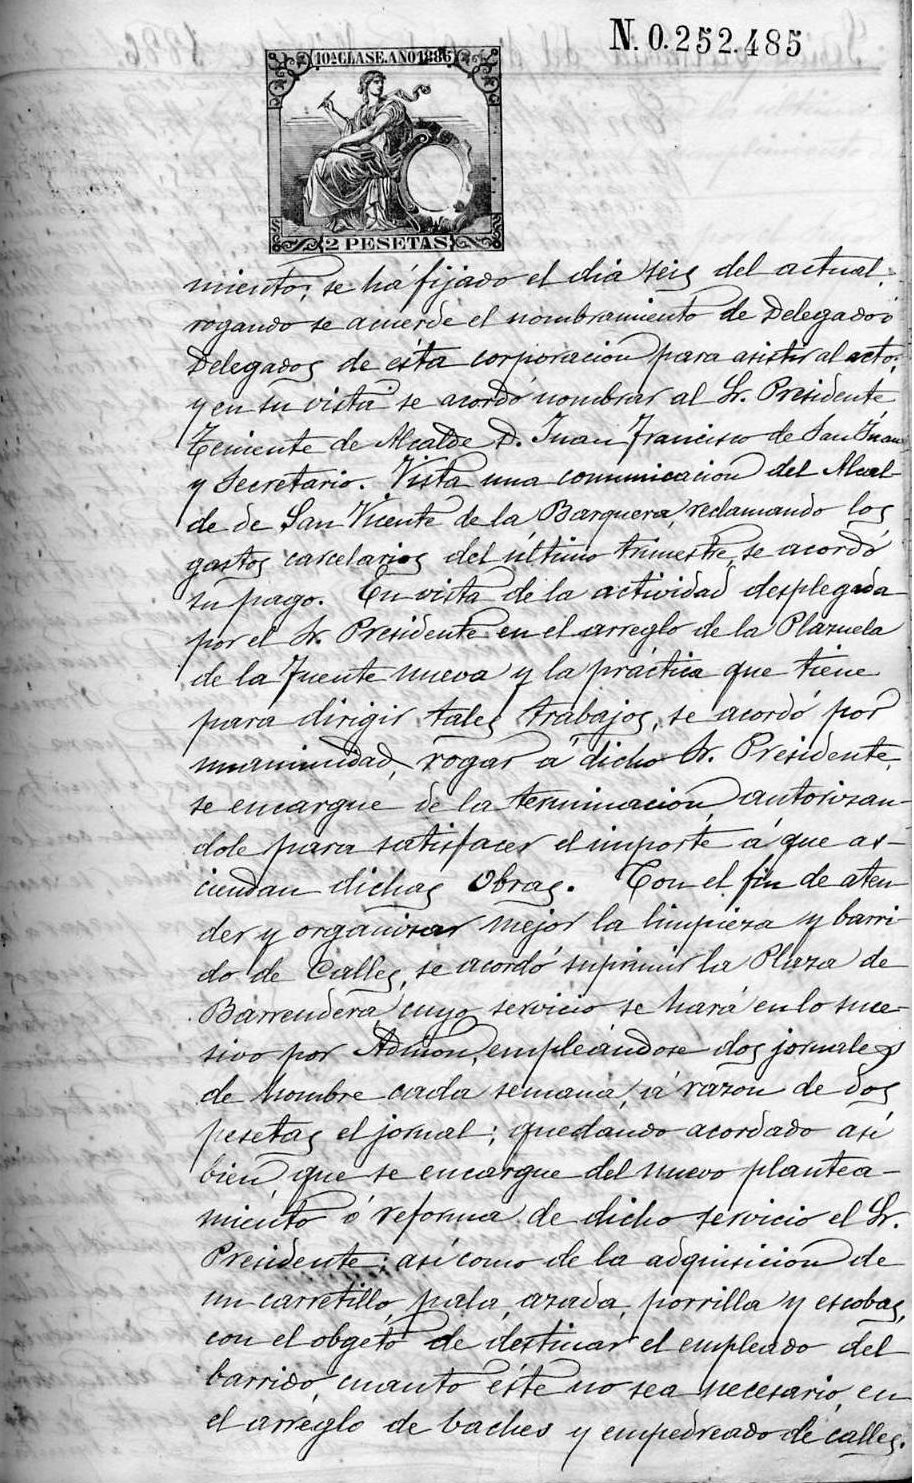 N. 0.252.485
10ª CLASE. AÑO 1886
2 PESETAS
miento, se há fijado el dia seis del actual,
rogando se acuerde el nombramiento de Delegado ó
Delegados de ésta corporacion para asistir al acto;
y en su vista se acordó nombrar al Sr. Presidente
Teniente de Alcalde D. Juan Francisco de San Juan
y Secretario. Vista una comunicacion del Alcal-
de de San Vicente de la Barquera, reclamando los
gastos carcelarios del último trimestre, se acordó
su pago. En vista de la actividad desplegada
por el Sr. Presidente en el arreglo de la Plazuela
de la Fuente nueva y la práctica que tiene
para dirigir tales trabajos, se acordó por
unanimidad, rogar á dicho Sr. Presidente,
se encargue de la terminacion, autorizan-
dole para satisfacer el importe á que as-
ciendan dichas Obras. Con el fin de aten-
der y organizar mejor la limpieza y barri-
do de Calles, se acordó suprimir la Plaza de
Barrendera, cuyo servicio se hará en lo suce-
sivo por Admon, empleándose dos jornales
de hombre cada semana, á razon de dos
pesetas el jornal; quedando acordado asi
bien que se encargue del nuevo plantea-
miento ó reforma de dicho servicio el Sr.
Presidente; así como de la adquisicion de
un carretillo, pala, azada, porrilla y escobas,
con el obgeto de destinar el empleado del
barrido, cuanto éste no sea necesario, en
el arréglo de baches y empedreado de calles.